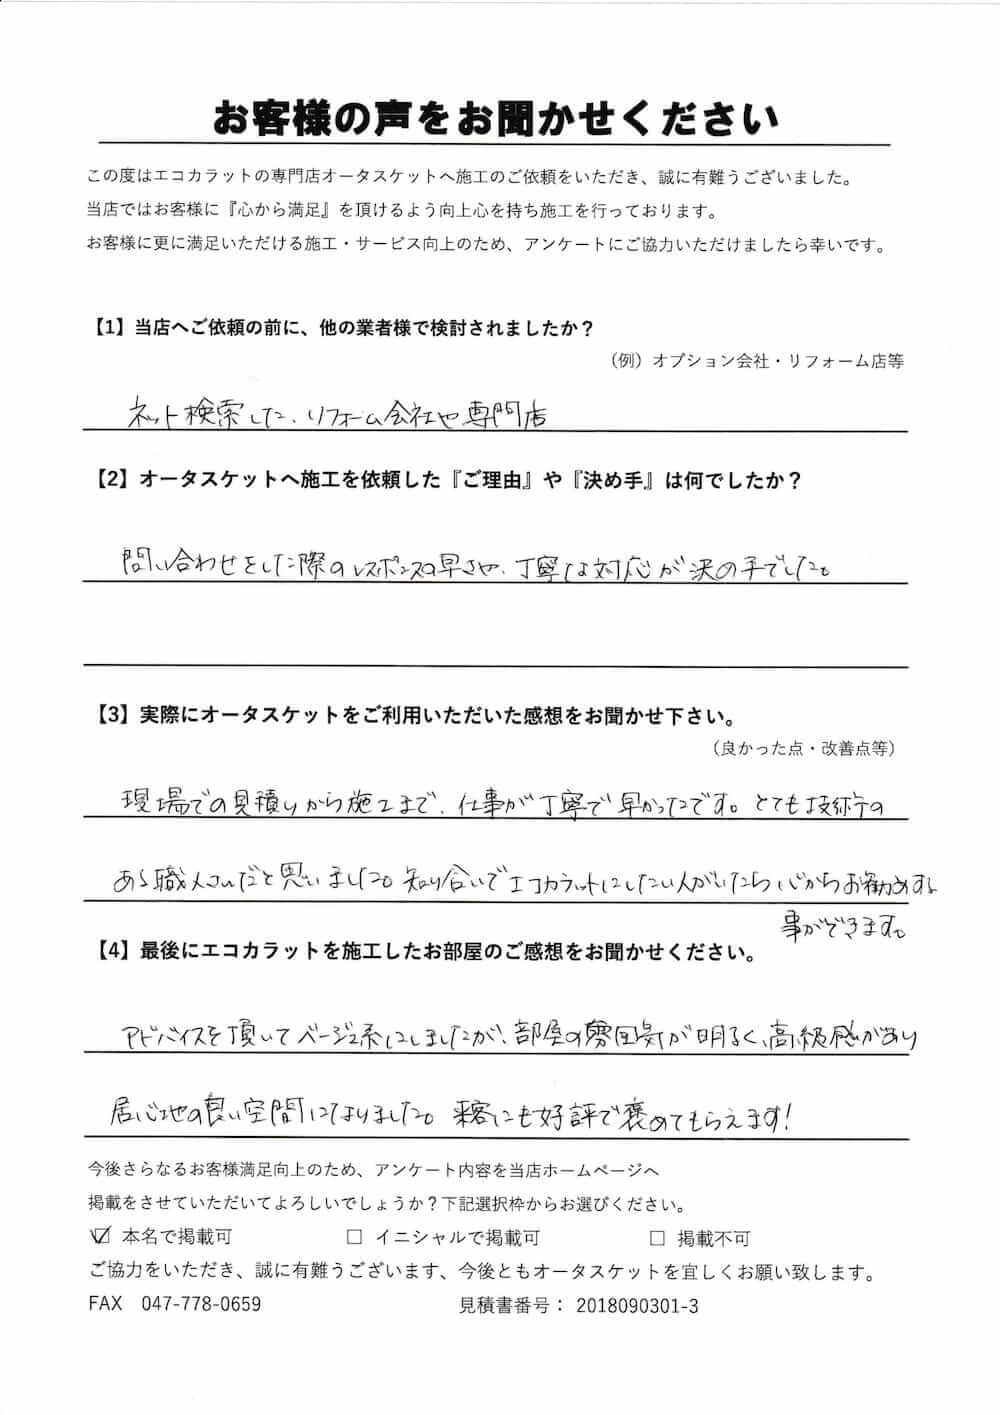 お客様の声をお聞かせください
この度はエコカラットの専門店オータスケットへ施工のご依頼をいただき、誠に有難うございました。
当店ではお客様に『心から満足』を頂けるよう向上心を持ち施工を行っております。
お客様に更に満足いただける施工・サービス向上のため、アンケートにご協力いただけましたら幸いです。
【1】当店へご依頼の前に、他の業者様で検討されましたか？
（例）オプション会社・リフォーム店等
ネット検索した、リフォーム会社や専門店
【2】オータスケットへ施工を依頼した『ご理由』や『決め手』は何でしたか？
問い合わせをした際のレスポンスの早さや、丁寧な対応が決め手でした。
【3】実際にオータスケットをご利用いただいた感想をお聞かせ下さい。
（良かった点・改善点等）
現場での見積りから施工まで、仕事が丁寧で早かったです。とても技術の
ある職人さんだと思いました。知り合いでエコカラットにしたい人がいたら心からお勧めする
事ができます。
【4】最後にエコカラットを施工したお部屋のご感想をお聞かせください。
アドバイスを頂いてベージュ系にしましたが、部屋の雰囲気が明るく、高級感があり
居心地の良い空間になりました。来客にも好評で褒めてもらえます！
今後さらなるお客様満足向上のため、アンケート内容を当店ホームページへ
掲載をさせていただいてよろしいでしょうか？下記選択枠からお選びください。
☑ 本名で掲載可 □ イニシャルで掲載可 □ 掲載不可
ご協力をいただき、誠に有難うございます、今後ともオータスケットを宜しくお願い致します。
FAX 047-778-0659 見積書番号： 2018090301-3